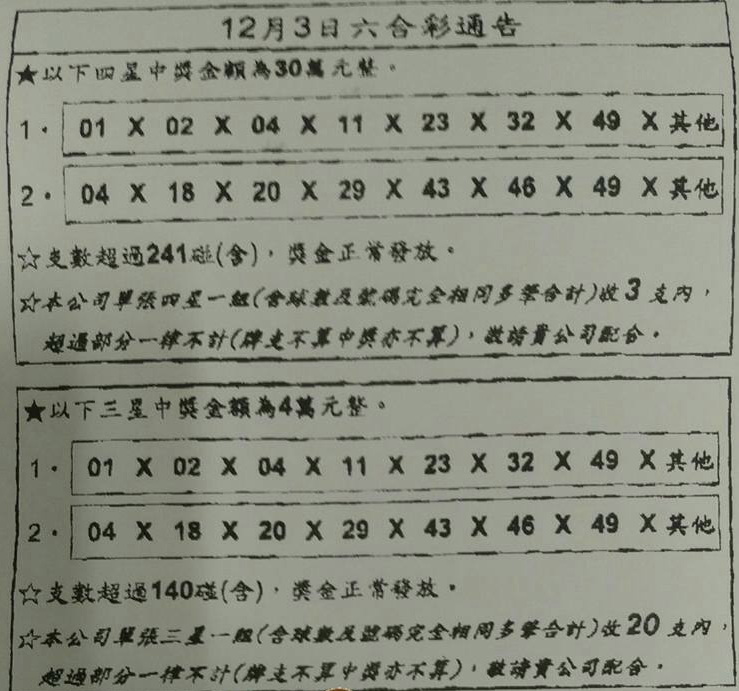 12月3日六合彩通告
★以下四星中獎金額為30萬元整。
1. 01 X 02 X 04 X 11 X 23 X 32 X 49 X 其他
2. 04 X 18 X 20 X 29 X 43 X 46 X 49 X 其他
☆支數超過241碰(含)，獎金正常發放。
☆本公司單張四星一組(含球數及號碼完全相同多筆合計)收3支內，
超過部分一律不計(牌支不算中獎亦不算)，敬請貴公司配合。
★以下三星中獎金額為4萬元整。
1. 01 X 02 X 04 X 11 X 23 X 32 X 49 X 其他
2. 04 X 18 X 20 X 29 X 43 X 46 X 49 X 其他
☆支數超過140碰(含)，獎金正常發放。
☆本公司單張三星一組(含球數及號碼完全相同多筆合計)收20支內，
超過部分一律不計(牌支不算中獎亦不算)，敬請貴公司配合。